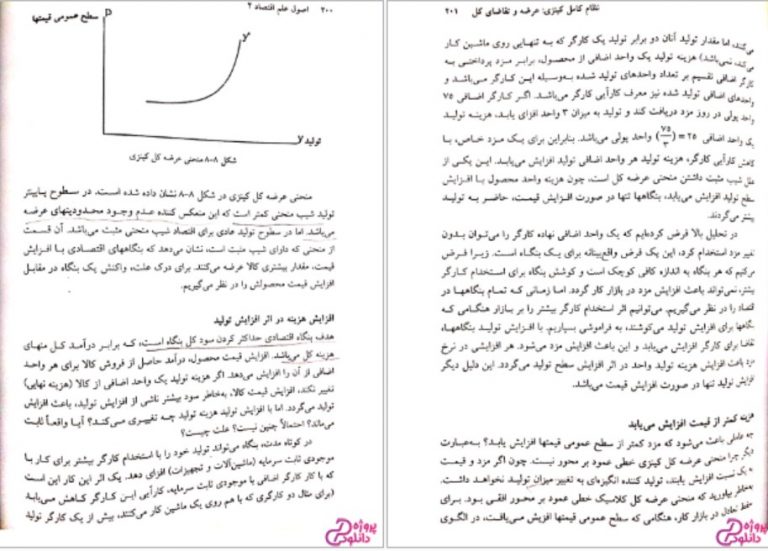 ۲۰۰ اصول علم اقتصاد ۲
سطح عمومی قیمتها P
Y
تولید Y
شکل ۸-۸ منحنی عرضه کل کینزی
منحنی عرضه کل کینزی در شکل ۸-۸ نشان داده شده است، در سطوح پایینتر
تولید شیب منحنی کمتر است که این منعکس کننده عدم وجود محدودیتهای عرضه
می‌باشد. اما در سطوح تولید عادی برای اقتصاد شیب منحنی مثبت می‌باشد. آن قسمت
از منحنی که دارای شیب مثبت است، نشان می‌دهد که بنگاههای اقتصادی با افزایش
قیمت، مقدار بیشتری کالا عرضه می‌کنند. برای درک علت، واکنش یک بنگاه در مقابل
افزایش قیمت محصولش را در نظر می‌گیریم.
افزایش هزینه در اثر افزایش تولید
هدف بنگاه اقتصادی حداکثر کردن سود کل بنگاه است، که برابر درآمد کل منهای
هزینه کل می‌باشد. افزایش قیمت محصول، درآمد حاصل از فروش کالا برای هر واحد
اضافی از آن را افزایش می‌دهد. اگر هزینه تولید یک واحد اضافی از کالا (هزینه نهایی)
تغییر نکند، افزایش قیمت کالا، به‌خاطر سود بیشتر ناشی از افزایش تولید، باعث افزایش
تولید می‌گردد. اما با افزایش تولید هزینه تولید چه تغییری می‌کند؟ آیا واقعاً ثابت
می‌ماند؟ احتمالاً چنین نیست؟ علت چیست؟
در کوتاه مدت، بنگاه می‌تواند تولید خود را با استخدام کارگر بیشتر برای کار با
موجودی ثابت سرمایه (ماشین‌آلات و تجهیزات) افزای دهد. یک اثر این کار این است
که با کار کارگر اضافی با موجودی ثابت سرمایه، کارآیی این کارگر کاهش می‌یابد
(برای مثال دو کارگری که با هم روی یک ماشین کار می‌کنند، بیش از یک کارگر تولید
پروژه
دانلود
نظام کامل کینزی: عرضه و تقاضای کل ۲۰۱
می‌کنند، اما مقدار تولید آنان دو برابر تولید یک کارگر که به تنهایی روی ماشین کار
می‌کند، نمی‌باشد) هزینه تولید یک واحد اضافی از محصول، برابر مزد پرداختی به
کارگر اضافی تقسیم بر تعداد واحدهای تولید شده به‌وسیله این کارگر می‌باشد و
واحدهای اضافی تولید شده نیز معرف کارآیی کارگر می‌باشد. اگر کارگر اضافی ۷۵
واحد پولی در روز مزد دریافت کند و تولید به میزان ۳ واحد افزای یابد، هزینه تولید
یک واحد اضافی ۲۵ = (۷۵/۳) واحد پولی می‌باشد. بنابراین برای یک مزد خاص، با
کاهش کارآیی کارگر، هزینه تولید هر واحد اضافی تولید افزایش می‌یابد. این یکی از
علل شیب مثبت داشتن منحنی عرضه کل است، چون هزینه واحد محصول با افزایش
سطح تولید افزایش می‌یابد، بنگاهها تنها در صورت افزایش قیمت، حاضر به تولید
بیشتر می‌گردند.
در تحلیل بالا فرض کرده‌ایم که یک واحد اضافی نهاده کارگر را می‌توان بدون
تغییر مزد استخدام کرد، این یک فرض واقع‌بینانه برای یک بنگاه است. زیرا فرض
می‌کنیم که هر بنگاه به اندازه کافی کوچک است و کوشش بنگاه برای استخدام کارگر
بیشتر، نمی‌تواند باعث افزایش مزد در بازار کار گردد. اما زمانی که تمام بنگاهها در
اقتصاد را در نظر می‌گیریم، می‌توانیم اثر استخدام کارگر بیشتر را بر بازار هنگامی که
بنگاهها برای افزایش تولید می‌کوشند، به فراموشی بسپاریم. با افزایش تولید بنگاهها،
تقاضا برای کارگر افزایش می‌یابد و این باعث افزایش مزد می‌شود. هر افزایشی در نرخ
مزد باعث افزایش هزینه تولید واحد در اثر افزایش سطح تولید می‌گردد. این دلیل دیگر
افزایش تولید تنها در صورت افزایش قیمت می‌باشد.
هزینه کمتر از قیمت افزایش می‌یابد
چه عاملی باعث می‌شود که مزد کمتر از سطح عمومی قیمتها افزایش یابد؟ به‌عبارت
دیگر چرا منحنی عرضه کل کینزی خطی عمود بر محور نیست. چون اگر مزد و قیمت
به یک نسبت افزایش یابند، تولید کننده انگیزه‌ای به تغییر میزان تولید نخواهد داشت.
به‌خاطر بیاورید که منحنی عرضه کل کلاسیک خطی عمود بر محور افقی بود. برای
حفظ تعادل در بازار کار، هنگامی که سطح عمومی قیمتها افزیش می‌یافت، در الگوی
پروژه
دانلود